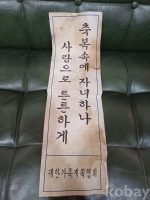 축복속에 자녀하나
사랑으로 튼튼하게
대한가족계획협회
kobay